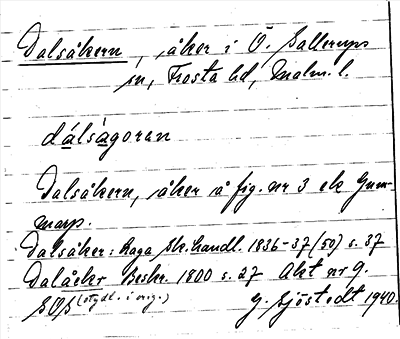 Dalsåkern, åker i Ö. Sallerups
sn, Frosta hd, Malm. l.
dálság̀oran
Dalsåkern, åker å fig. nr 3 ek Gum-
marp.
Dalsåker: Laga sk. handl. 1836-37 (50) s. 37
Dalåckr Beskr. 1800 s. 27 Akt nr 9.
(otydl. i orig.) G. Sjöstedt 1940.